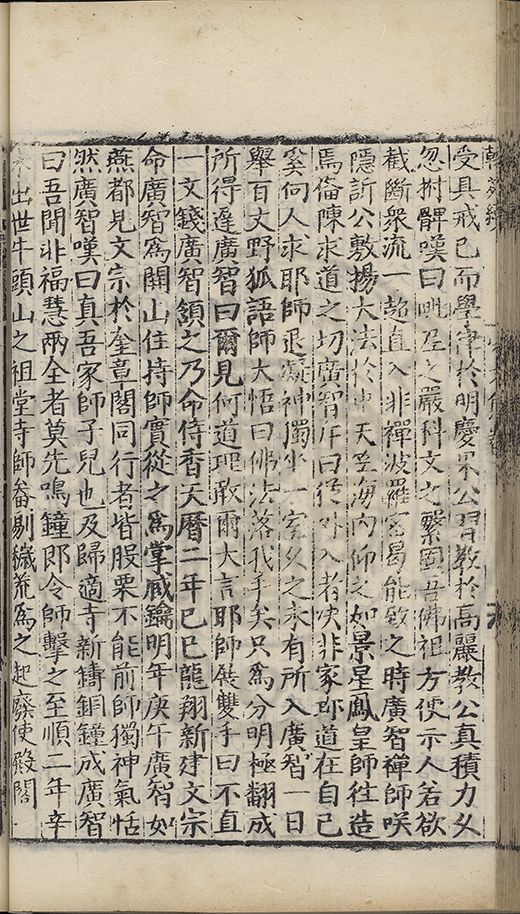 受具戒已而學律於明慶杲公習教於高麗教公真積力久
忽拊髀嘆曰毗尼之嚴科文之繁固吾佛祖方便示人若欲
截斷衆流一超直入非禪波羅密曷能致之時廣智禪師咲
隱訢公敷揚大法於中天竺海内仰之如景星鳳皇師往造
焉備陳求道之切廣智斥曰從外入者决非家珍道在自己
奚向人求耶師退凝神獨坐一室久之未有所入廣智一日
舉百丈野狐語師大悟曰佛法落我手矣只爲分明極翻成
所得遲廣智曰爾見何道理敢爾大言耶師展雙手曰不直
一文錢廣智頷之乃命侍香天曆二年己巳龍翔新建文宗
命廣智爲開山住持師實從之爲掌藏鑰明年庚午廣智如
燕都見文宗於奎章閣同行者皆股栗不能前師獨神氣恬
然廣智嘆曰真吾家師子兒也及歸適寺新鑄銅鐘成廣智
曰吾聞非福慧兩全者莫先鳴鐘即令師擊之至順二年辛
未出世牛頭山之祖堂寺師畚剔穢荒爲之起廢使殿閣